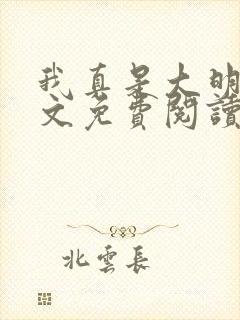 我真是大明
文免費閱讀
北雲長